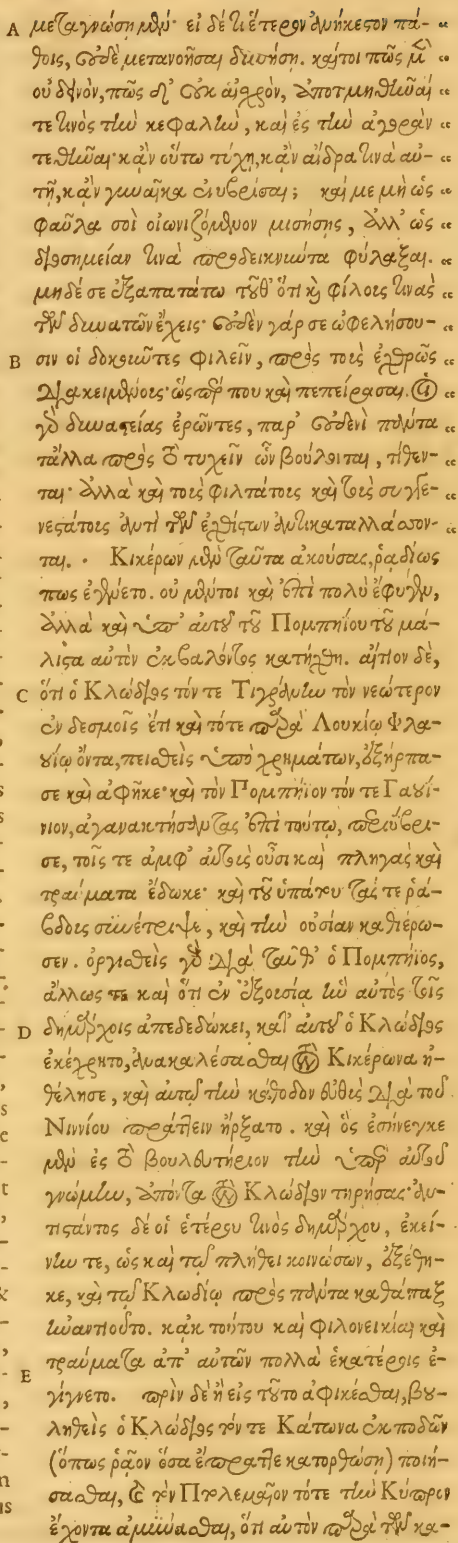 A μεταγνώσῃ μὲν· εἰ δέ τι ἕτερον ἀνήκεστον πά- “
θοις, οὐδὲ μετανοῆσαι δυνήσῃ. καίτοι πῶς μὲν “
οὐ δεινὸν, πῶς δ' οὐκ αἰσχρὸν, ἀποτμηθῆναί “
τε τινὸς τὴν κεφαλὴν, καὶ ἐς τὴν ἀγορὰν “
τεθῆναι· κᾂν οὕτω τύχῃ, κᾂν ἄνδρα τινὰ αὐ- “
τῇ, κᾂν γυναῖκα ἐνυβρίσαι; καί με μὴ ὡς “
φαῦλά σοι οἰωνιζόμενον μισήσῃς, ἀλλ' ὡς “
διοσημείαν τινὰ προδεικνύντα φύλαξαι. “
μηδέ σε ἐξαπατάτω τοῦθ' ὅτι καὶ φίλους τινὰς “
τῶν δυνατῶν ἔχεις· οὐδὲν γάρ σε ὠφελήσου- “
B σιν οἱ δοκοῦντες φιλεῖν, πρὸς τοὺς ἐχθρῶς “
διακειμένους· ὥσπερ που καὶ πεπείρασαι. οἱ “
γὸ δυναστείας ἐρῶντες, παρ' οὐδενὶ πάντα “
τἆλλα πρὸς τὸ τυχεῖν ὧν βούλονται, τίθεν- “
ται· ἀλλὰ καὶ τοὺς φιλτάτους καὶ τοὺς συγγε- “
νεστάτους ἀντὶ τῶν ἐχθίστων ἀντικαταλλάσσον- “
ται. · Κικέρων μὲν ταῦτα ἀκούσας, ῥᾳδίως
πως ἐγένετο. οὐ μέντοι καὶ ἐπὶ πολὺ ἔφυγεν,
ἀλλὰ καὶ ὑπ' αὐτοῦ τοῦ Πομπηίου τοῦ μά-
λιστα αὐτὸν ἐκβαλόντος κατήχθη. αἴτιον δὲ,
C ὅτι ὁ Κλώδιος τόν τε Τιγράνην τὸν νεώτερον
ἐν δεσμοῖς ἔτι καὶ τότε παρὰ Λουκίῳ Φλα-
ουίῳ ὄντα, πεισθεὶς ὑπὸ χρημάτων, ἐξήρπα-
σε καὶ ἀφῆκε· καὶ τὸν Πομπήϊον τόν τε Γαουί-
νιον, ἀγανακτήσαντας ἐπὶ τούτῳ, περιύβρι-
σε, τοῖς τε ἀμφ' αὐτοὺς οὖσι καὶ πληγὰς καὶ
τραύματα ἔδωκε· καὶ τοῦ ὑπάτου τάς τε ῥά-
βδους συνέτριψε, καὶ τὴν οὐσίαν καθιέρω-
σεν. ὀργισθεὶς γὸ διὰ ταῦθ' ὁ Πομπήϊος,
ἄλλως τε καὶ ὅτι ἐν ἐξουσίᾳ ἣν αὐτὸς τοῖς
D δημάρχοις ἀπεδεδώκει, κατ' αὐτοῦ ὁ Κλώδιος
ἐκέχρητο, ἀνακαλέσασθαι τὸν Κικέρωνα ἠ-
θέλησε, καὶ αὐτῷ τὴν κάθοδον εὐθὺς διὰ τοῦ
Νιννίου πράττειν ἤρξατο. καὶ ὃς ἐσήνεγκε
μὲν ἐς τὸ βουλευτήριον τὴν ὑπὲρ αὐτοῦ
γνώμην, ἀπόντα τὸν Κλώδιον τηρήσας· ἀν-
τιστάντος δέ οἱ ἑτέρου τινὸς δημάρχου, ἐκεί-
νην τε, ὡς καὶ τῷ πλήθει κοινώσων, ἐξέθη-
κε, καὶ τῷ Κλωδίῳ πρὸς πάντα καθάπαξ
ἠναντιοῦτο. κἀκ τούτου καὶ φιλονεικίαι καὶ
τραύματα ἀπ' αὐτῶν πολλὰ ἑκατέροις ἐ-
E γίγνετο. πρὶν δὲ ἢ εἰς τοῦτο ἀφικέσθαι, βου-
ληθεὶς ὁ Κλώδιος τόν τε Κάτωνα ἐκποδὼν
(ὅπως ῥᾷον ὅσα ἔπραττε κατορθώσῃ) ποιή-
σασθαι, καὶ τὸν Πτολεμαῖον τότε τὴν Κύπρον
ἔχοντα ἀμύνασθαι, ὅτι αὐτὸν παρὰ τῶν κα-